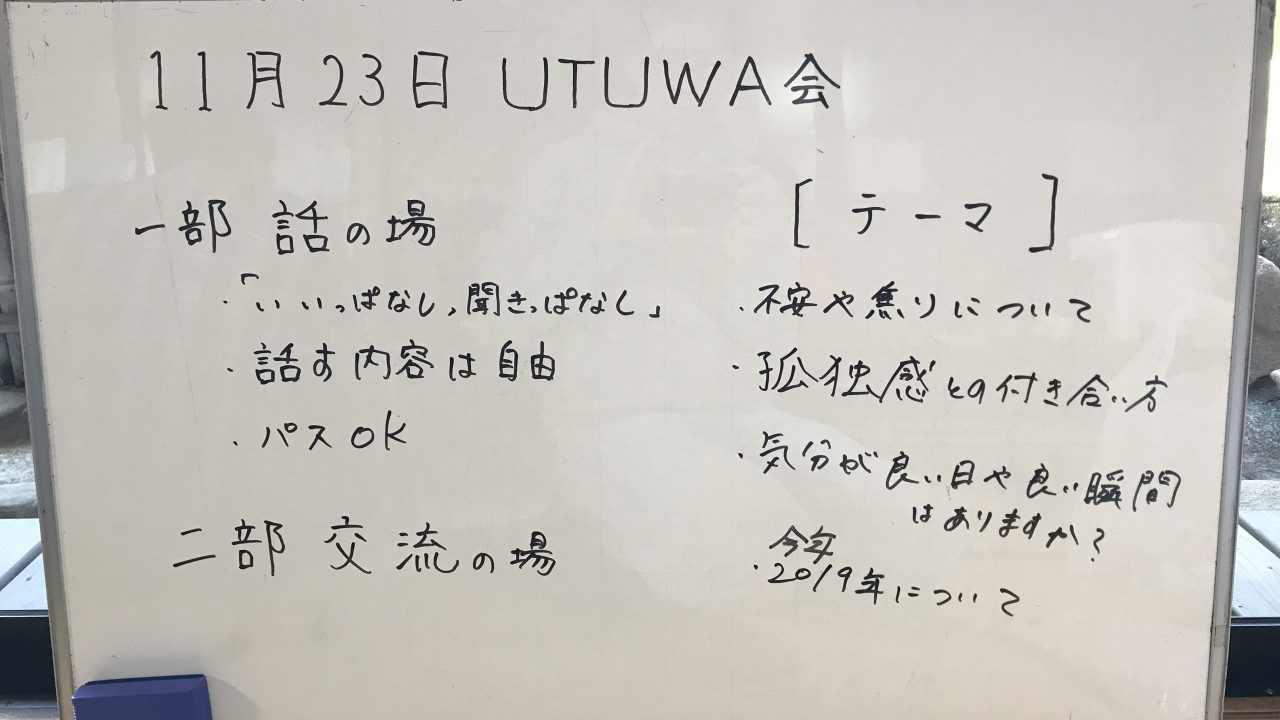 11月23日 UTUWA会
一部 話の場
・「いいっぱなし,聞きっぱなし」
・話す内容は自由
・パスOK
二部 交流の場
[テーマ]
・不安や焦りについて
・孤独感との付き合い方
・気分が良い日や良い瞬間
はありますか?
今年
・2019年について